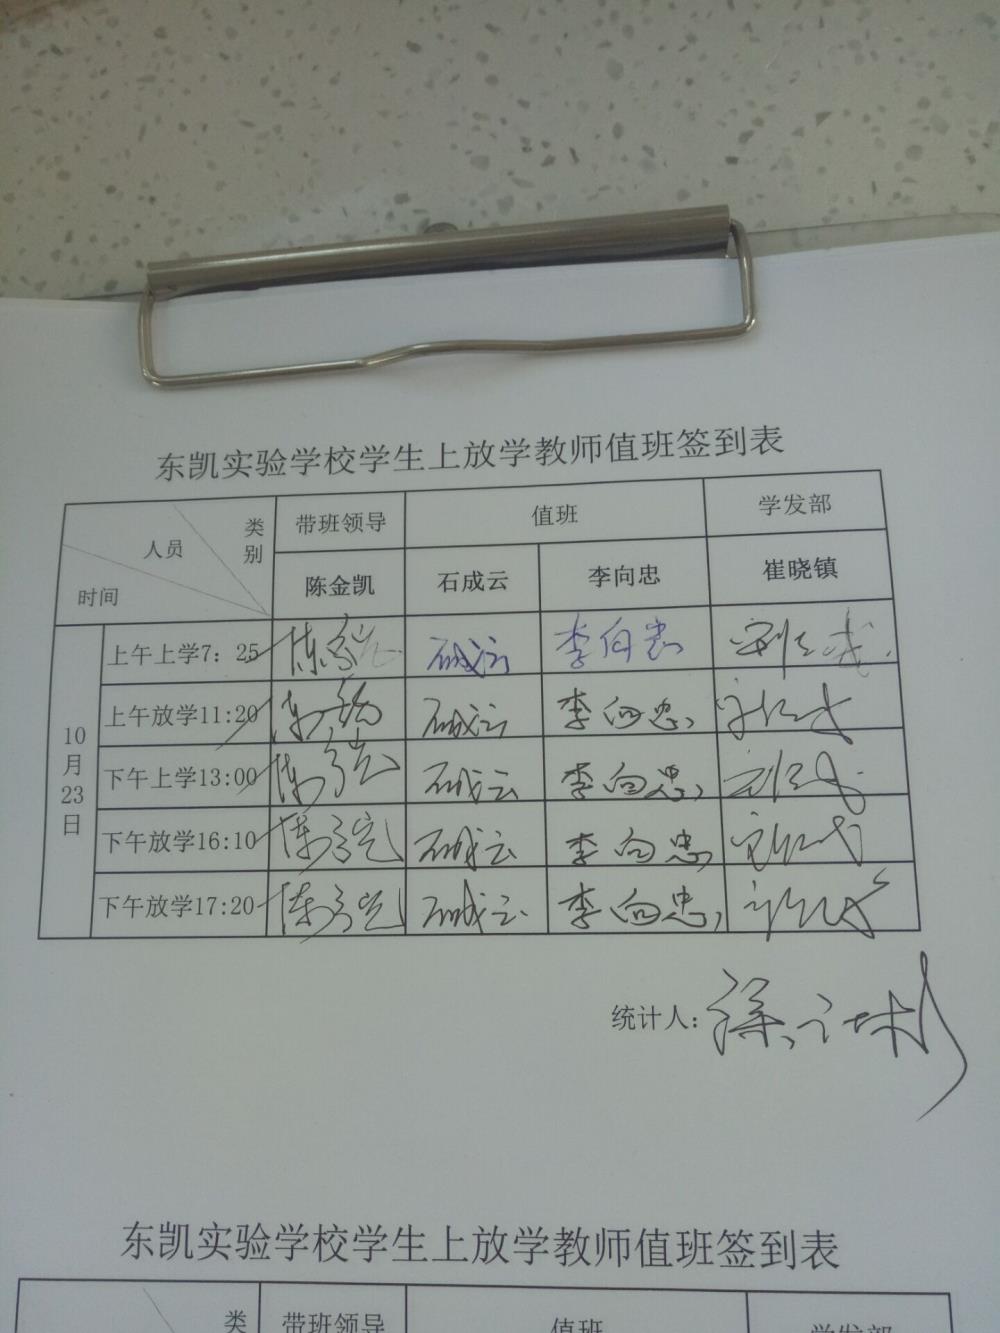 东凯实验学校学生上放学教师值班签到表
类别 带班领导 值班 学发部
人员
时间 陈金凯 石成云 李向忠 崔晓镇
10月23日
上午上学7：25 陈金凯 石成云 李向忠
上午放学11:20 陈金凯 石成云 李向忠
下午上学13:00 陈金凯 石成云 李向忠
下午放学16:10 陈金凯 石成云 李向忠
下午放学17:20 陈金凯 石成云 李向忠
统计人：
东凯实验学校学生上放学教师值班签到表
类 带班领导 值班 学发部